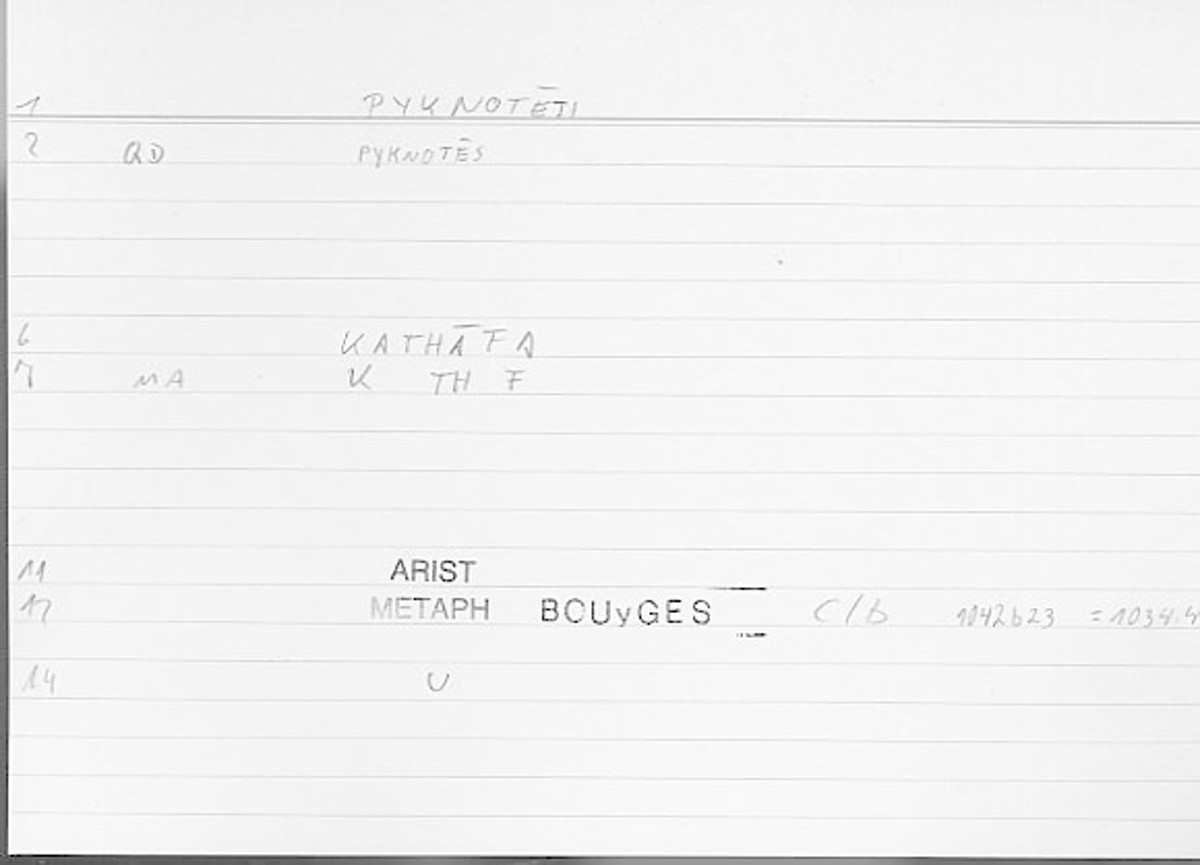 1 PYKNOTĒTI
2 QD PYKNOTĒS
6 KATHĀFA
7 MA K TH F
11 ARIST
12 METAPH BOUyGES C/b 1042b23 =1034.4
14 U